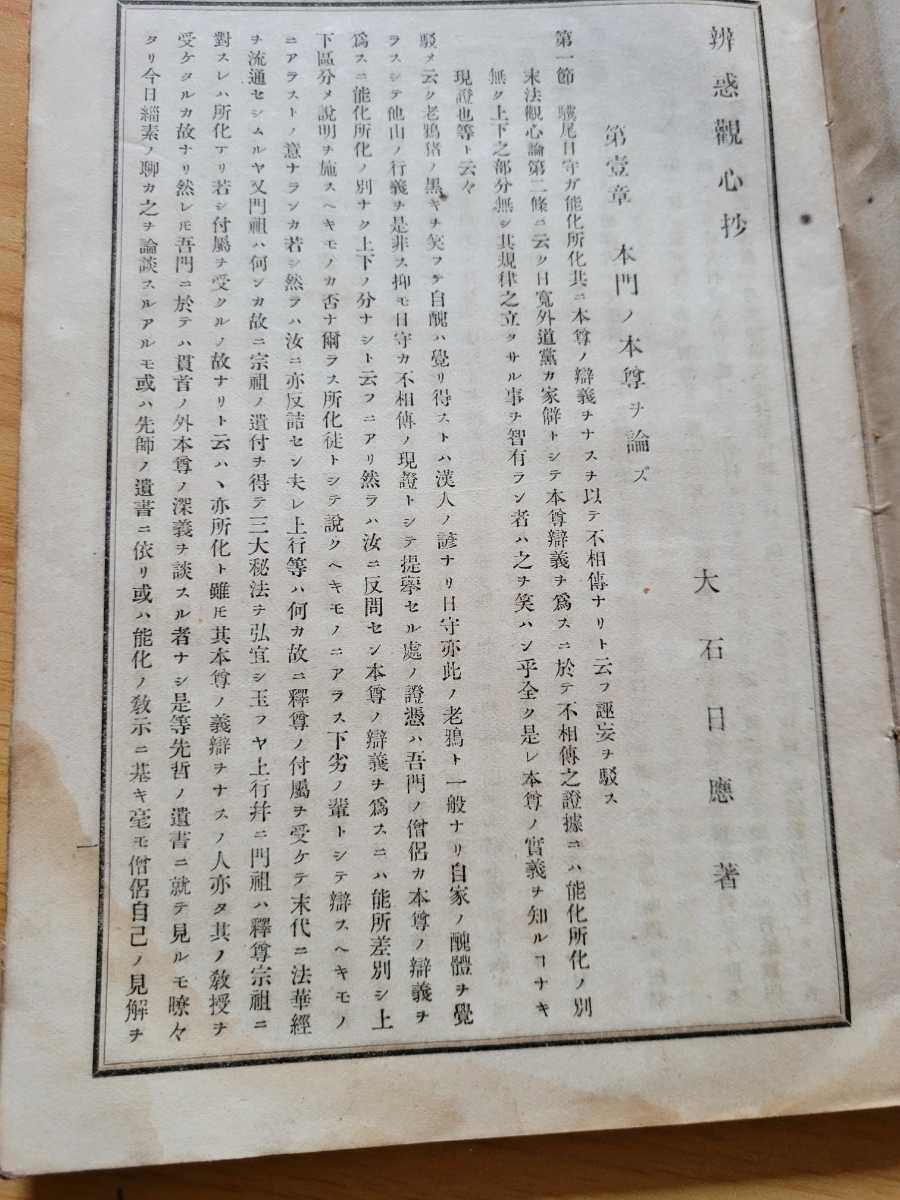 辨惑觀心抄
大石日應著
第壹章 本門ノ本尊ヲ論ズ
第一節 驥尾日守ガ能化所化共ニ本尊ノ辯義ヲナスヲ以テ不相傳ナリト云フ誣妄ヲ駁ス
末法觀心論第二條ニ云ク日寬外道黨カ家僻トシテ本尊辯義ヲ爲スニ於テ不相傳之證據ニハ能化所化ノ別
無ク上下之部分無シ其規律之立タサル事ヲ智有ラン者ハ之ヲ笑ハン乎全ク是レ本尊ノ實義ヲ知ルヿナキ
現證也等ト云々
駁メ云ク老鴉猪ノ黑キヲ笑フテ自醜ハ覺リ得ストハ漢人ノ諺ナリ日守亦此ノ老鴉ト一般ナリ自家ノ醜體ヲ覺
ラスシテ他山ノ行義ヲ是非ス抑モ日守カ不相傳ノ現證トシテ提擧セル處ノ證憑ハ吾門ノ僧侶カ本尊ノ辯義ヲ
爲スニ能化所化ノ別ナク上下ノ分ナシト云フニアリ然ラハ汝ニ反問セン本尊ノ辯義ヲ爲スニハ能所差別シ上
下區分メ說明ヲ施スヘキモノカ否ナ爾ラス所化徒トシテ說クヘキモノニアラス下劣ノ輩トシテ辯スヘキモノ
ニアラストノ意ナランカ若シ然ラハ汝ニ亦反詰セン夫レ上行等ハ何カ故ニ釋尊ノ付屬ヲ受ケテ末代ニ法華經
ヲ流通セシムルヤ又門祖ハ何ンカ故ニ宗祖ノ遺付ヲ得テ三大秘法ヲ弘宣シ玉フヤ上行幷ニ門祖ハ釋尊宗祖ニ
對スレハ所化ナリ若シ付屬ヲ受クルノ故ナリト云ハヽ亦所化ト雖モ其本尊ノ義辯ヲナスノ人亦タ其ノ敎授ヲ
受ケタルカ故ナリ然レモ吾門ニ於テハ貫首ノ外本尊ノ深義ヲ談スル者ナシ是等先哲ノ遺書ニ就テ見ルモ瞭々
タリ今日緇素ノ聊カ之ヲ論談スルアルモ或ハ先師ノ遺書ニ依リ或ハ能化ノ敎示ニ基キ毫モ僧侶自己ノ見解ヲ